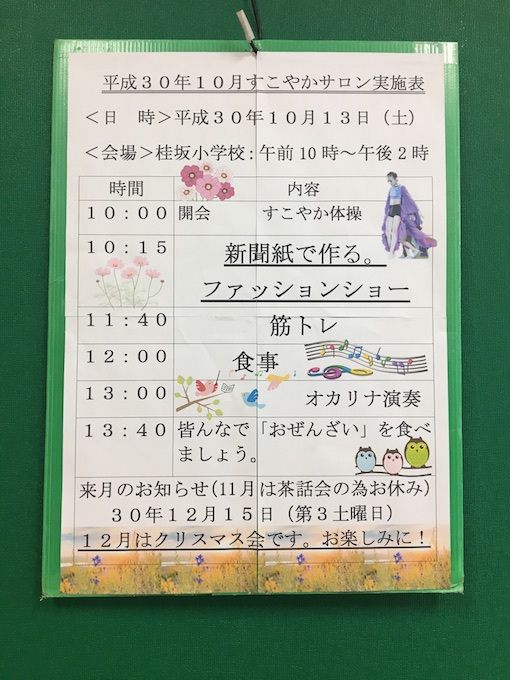 平成３０年１０月すこやかサロン実施表
＜日　時＞平成３０年１０月１３日（土）
＜会場＞桂坂小学校：午前10時～午後２時
時間　内容
１０：００　開会　すこやか体操
１０：１５　新聞紙で作る。
ファッションショー
１１：４０　筋トレ
１２：００　食事
１３：００　オカリナ演奏
１３：４０　皆んなで「おぜんざい」を食べ
ましょう。
来月のお知らせ(11月は茶話会の為お休み）
３０年１２月１５日（第３土曜日）
１２月はクリスマス会です。お楽しみに！